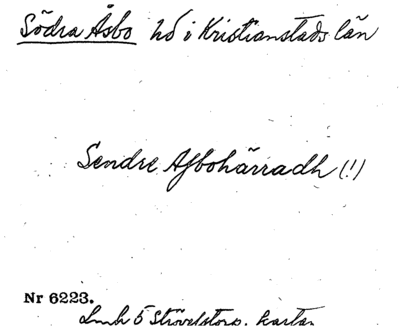 Södra Åsbo hd i Kristianstads län
Sendre Asbohärradh (!)
Nr 6223.
Lmh 5 Strövelstorp. kartan